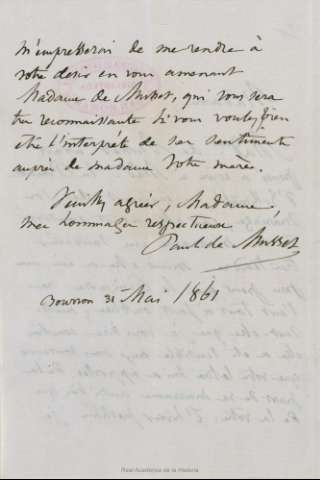 m'empresserai de me rendre à
votre desir en vous amenant
Madame de Musset, qui vous sera
très reconnaissante si vous voulez bien
être l'interprète de ses sentiments
auprès de madame votre mère.
Veuillez agréer, Madame,
mes hommages respectueux,
Paul de Musset
Bourron 31 Mai 1861
Real Academia de la Historia